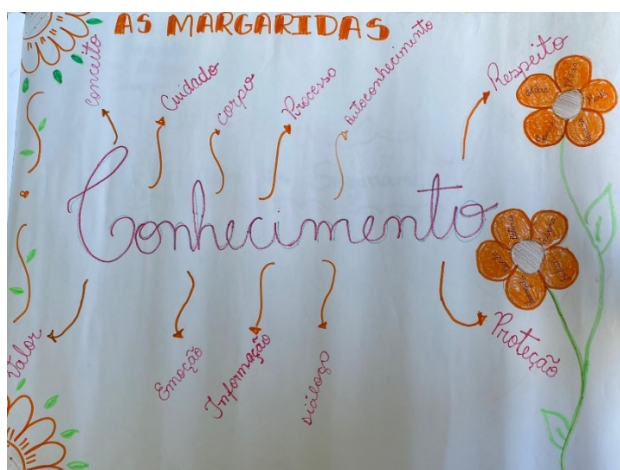 AS MARGARIDAS
Conceito
Cuidado
corpo
Processo
Autoconhecimento
Respeito
Conhecimento
Valor
Emoção
Informação
diálogo
Proteção